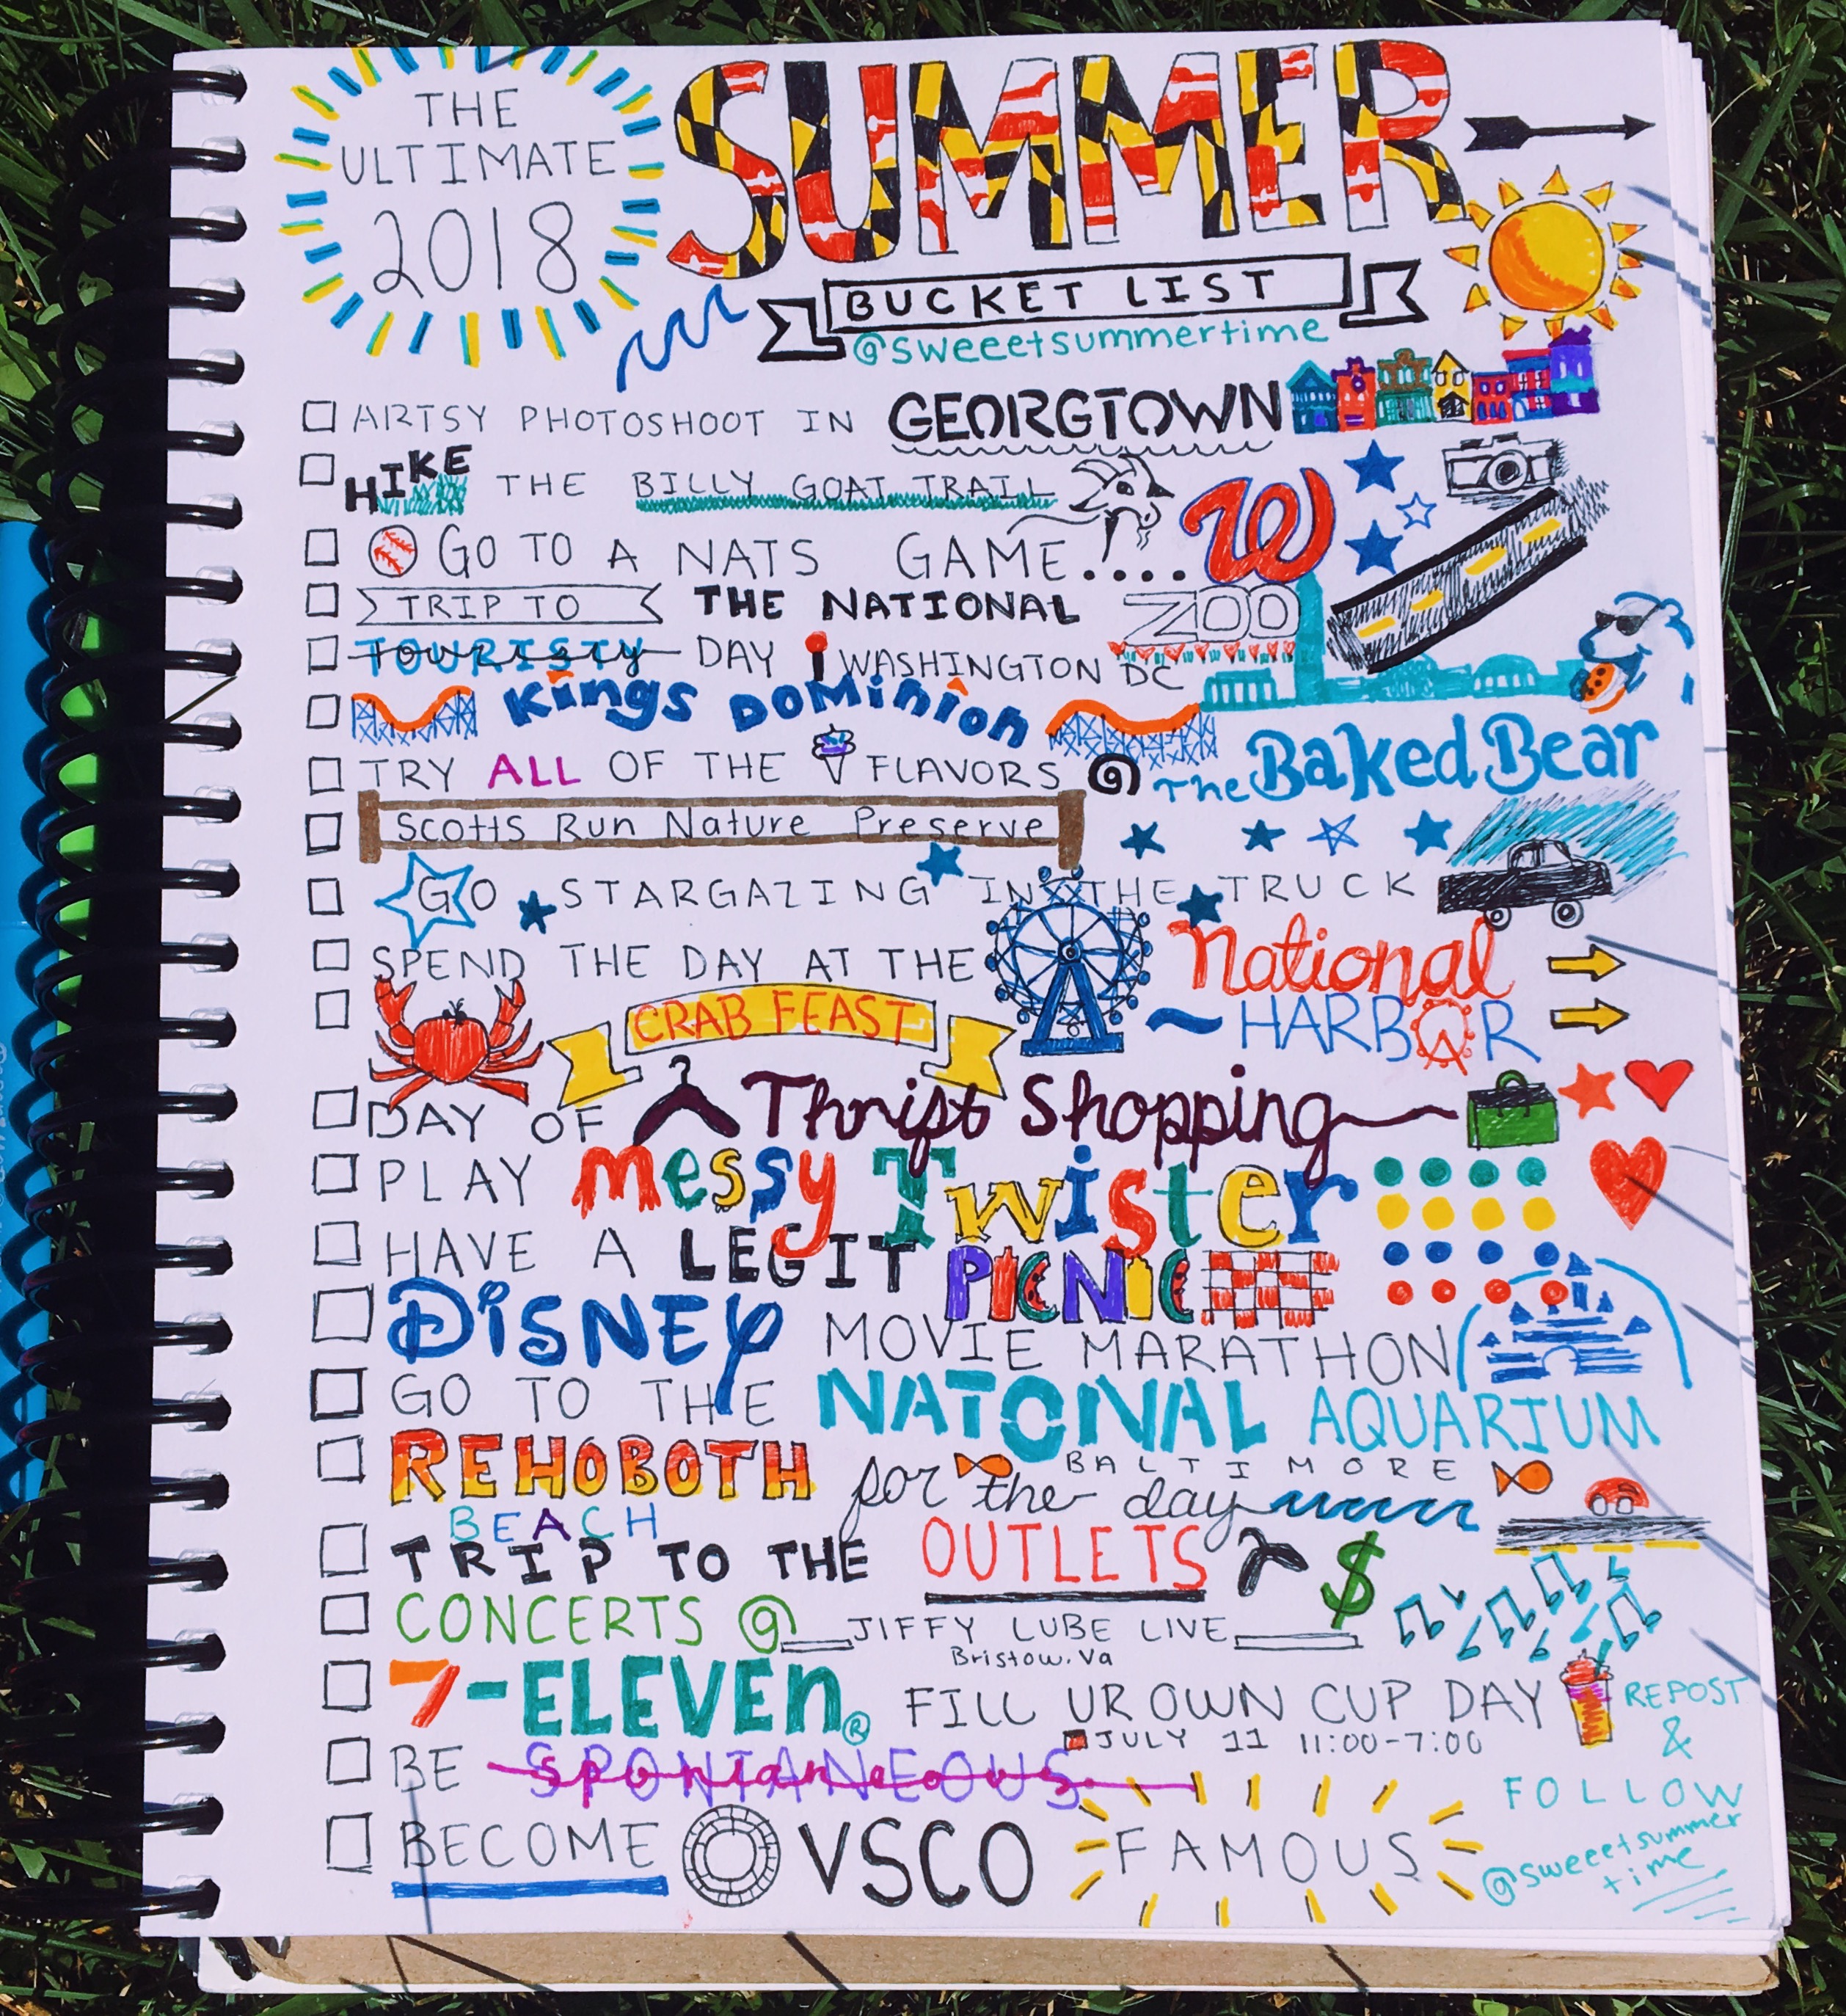 THE
ULTIMATE
2018
SUMMER
BUCKET LIST
@sweeetsummertime
ARTSY PHOTOSHOOT IN GEORGTOWN
HIKE THE BILLY GOAT TRAIL
GO TO A NATS GAME.... W
TRIP TO THE NATIONAL ZOO
TOURISTY DAY WASHINGTON DC
Kings DOMinion
TRY ALL OF THE FLAVORS @ The Baked Bear
Scotts Run Nature Preserve
GO STARGAZING IN THE TRUCK
SPEND THE DAY AT THE National
~ HARBOR
CRAB FEAST
DAY OF Thrift Shopping
PLAY messy Twister
HAVE A LEGIT PICNIC
DiSNEY MOVIE MARATHON
GO TO THE NATONAL AQUARIUM
BALTIMORE
REHOBOTH for the day
BEACH
TRIP TO THE OUTLETS $
CONCERTS @ JIFFY LUBE LIVE
Bristow, Va
7-ELEVEn® FILL UR OWN CUP DAY
JULY 11 11:00-7:00
BE SPONTANEOUS
BECOME VSCO FAMOUS
REPOST
&
FOLLOW
@sweeetsummer
time